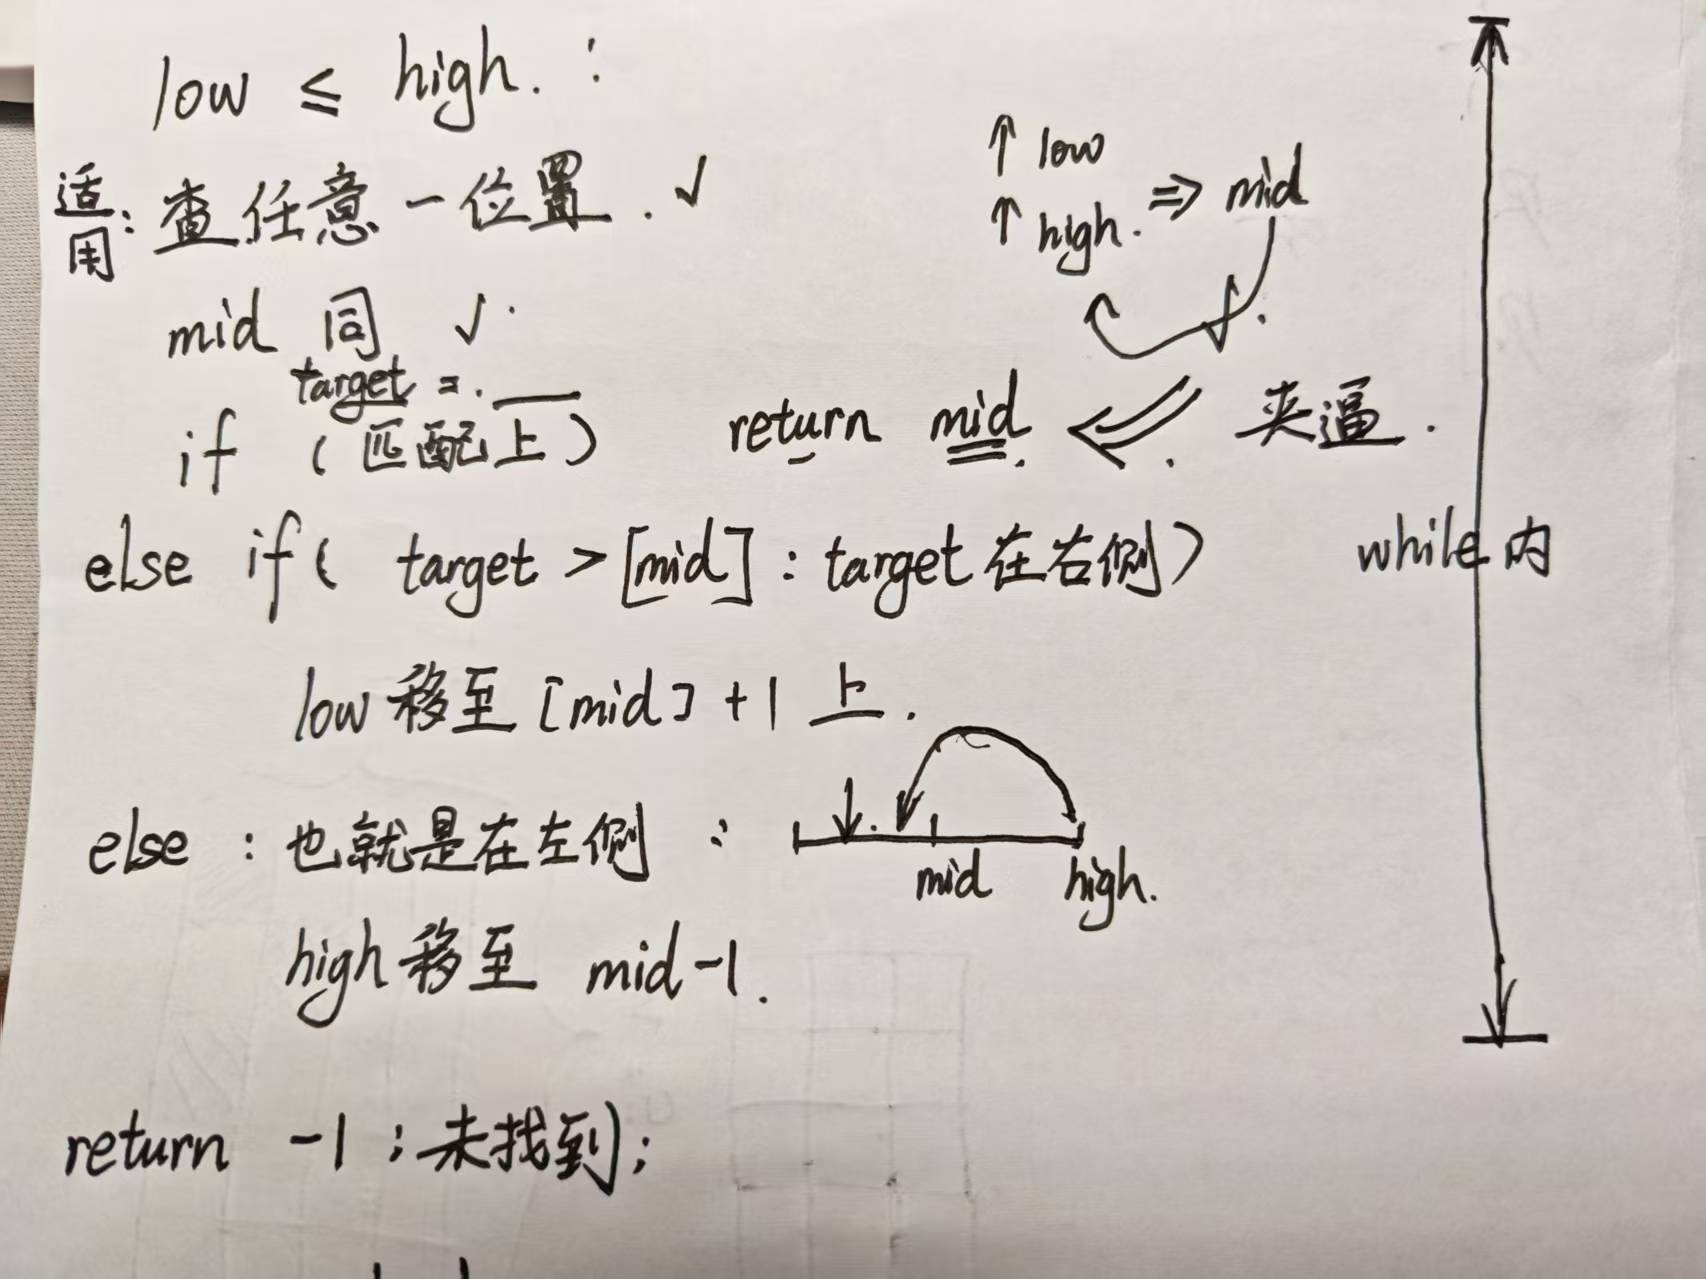 low ≤ high. :
适用: 查任意一位置. √
↑ low
↑ high. ⇒ mid
mid 同 √.
target = .
if (匹配上) return mid. 夹逼.
else if( target > [mid] : target 在右侧) while 内
low 移至 [mid] + 1 上.
else : 也就是在左侧 :
mid high.
high 移至 mid-1.
return -1 ; 未找到;